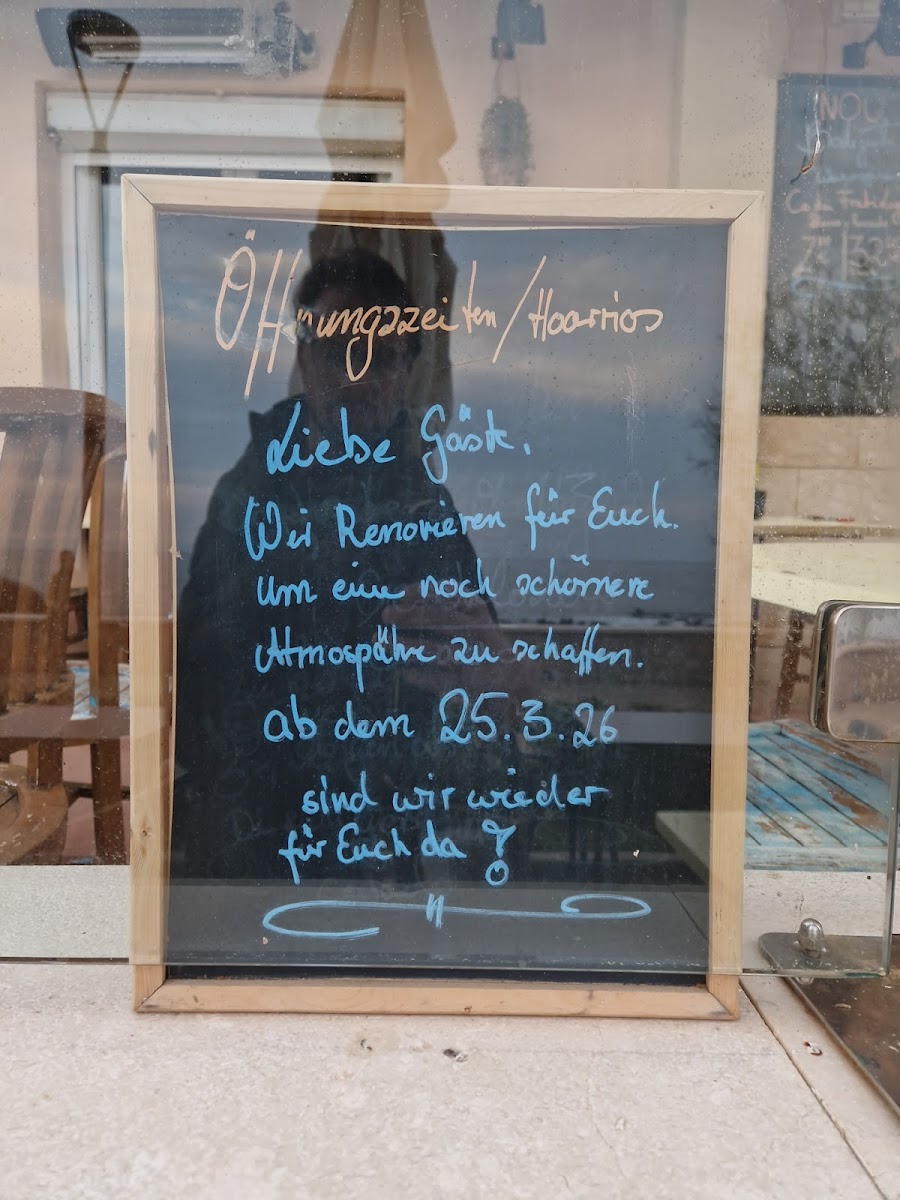 Öffnungszeiten/Hoorrios
Liebe Gäste,
Wir Renovieren für Euch.
um eine noch schönere
Atmospähre zu schaffen.
ab dem 25.3.26
sind wir wieder
für Euch da!
NOU